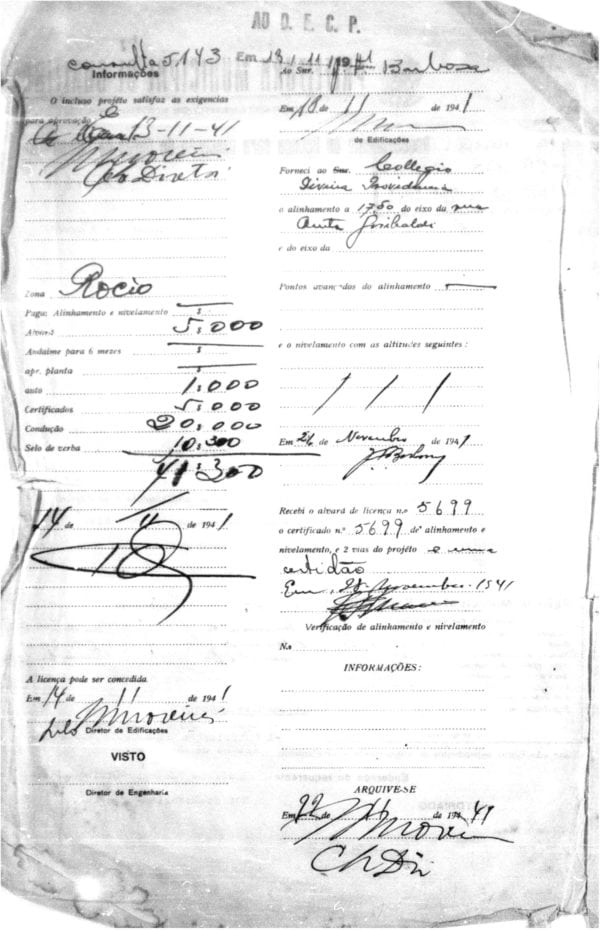 AO D. E. C. P.
consulta 5143 Em 13/11/1941
Informações
O incluso projéto satisfaz as exigencias
para aprovação
13-11-41
Zona Rocio
Pagu: Alinhamento e nivelamento $
Alvará 5$000
Andaime para 6 mezes $
apr. planta
auto 1$000
Certificados 5$000
Condução 20$000
Selo de verba 10$300
41$300
14 de 11 de 1941
A licença pode ser concedida.
Em 14 de 11 de 1941
Diretor de Edificações
VISTO
Diretor de Engenharia
Ao Snr. Barbosa
Em 18 de 11 de 1941
de Edificações
Forneci ao Snr. Collegio
Divina Providencia
o alinhamento a 1750 do eixo da rua
Anita Garibaldi
e do eixo da
Pontos avançados do alinhamento
e o nivelamento com as altitudes seguintes:
/ / /
Em 26 de Novembro de 1941
Recebi o alvará de licença n.o 5699
o certificado n.o 5699 de alinhamento e
nivelamento, e 2 vias do projéto e uma
certidão
Em, 28 Novembro 1941
Verificação de alinhamento e nirelamento
N.o
INFORMAÇÕES:
ARQUIVE-SE
Em 22 de de 1941